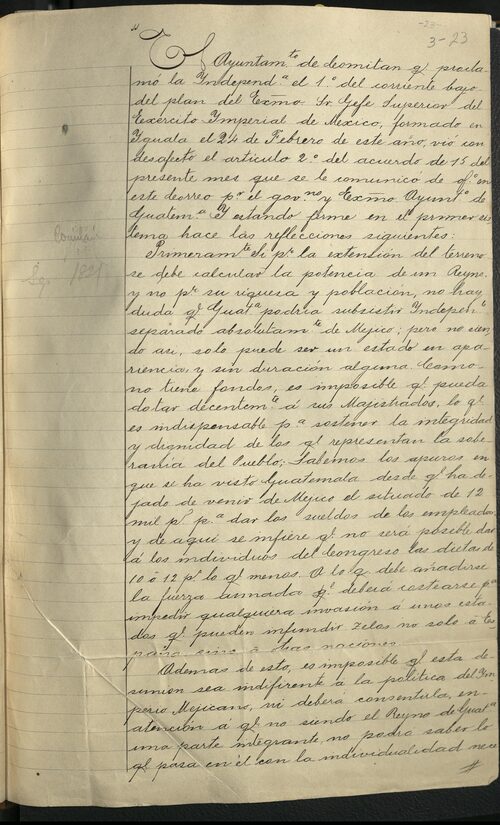 -23-
3-23
"
El Ayuntam.to de Comitan q.e procla-
mó la Yndepend.a el 1.º del corriente bajo
del plan del Exmo. Sr. Gefe Superior del
Exército Ymperial de Mexico, formado en
Yguala el 24 de Febrero de este año, vió con
desafecto el artículo 2.º del acuerdo de 15 del
presente mes que se le comunicó de of.º en
este correo p.r el gov.no y Exmo Ayunt.º de
Guatem.a El estando firme en el primer sis
tema hace las reflecciones siguientes:
Primeram.te Si p.r la extención del terreno
se debe calcular la potencia de un Reyno,
y no p.r su riquesa y población, no hay
duda q.e Guat.a podría subsistir Yndepen.te
separado absolutam.te de Mejico; pero no sien
do asi, solo puede ser un estado en apa-
riencia y sin duración alguna. Como
no tiene fondos, es imposible q.e pueda
dotar decentem.te á sus Majistrados, lo q.e
es indispensable p.a sostener la integridad
y dignidad de los q.e representan la sobe
ranía del Pueblo; Sabemos los apuros en
que se ha visto Guatemala desde q.e ha de-
jado de venir de Mejico el situado de 12
mil p.s p.a dar los sueldos de los empleados
y de aqui se infiere q.e no será posible dar
á los individuos del Congreso las dietas de
10 ó 12 p.s lo q.e menos. A lo q.e debe añadirse
la fuerza armada q.e debera costearse p.a
impedir qualquiera invasión á unos esta-
dos q.e pueden infundir zelos no solo á Es
paña sino á otras naciones.
Ademas de esto, es imposible q.e esta de-
sunion sea indiferente á la política del Ym
perio Mejicano, ni deberá consentirla, en
atención á q.e no siendo el Reyno de Guat.a
una parte integrante, no podrá saber lo
q.e pasa en él con la individualidad nece
Comitán
1821